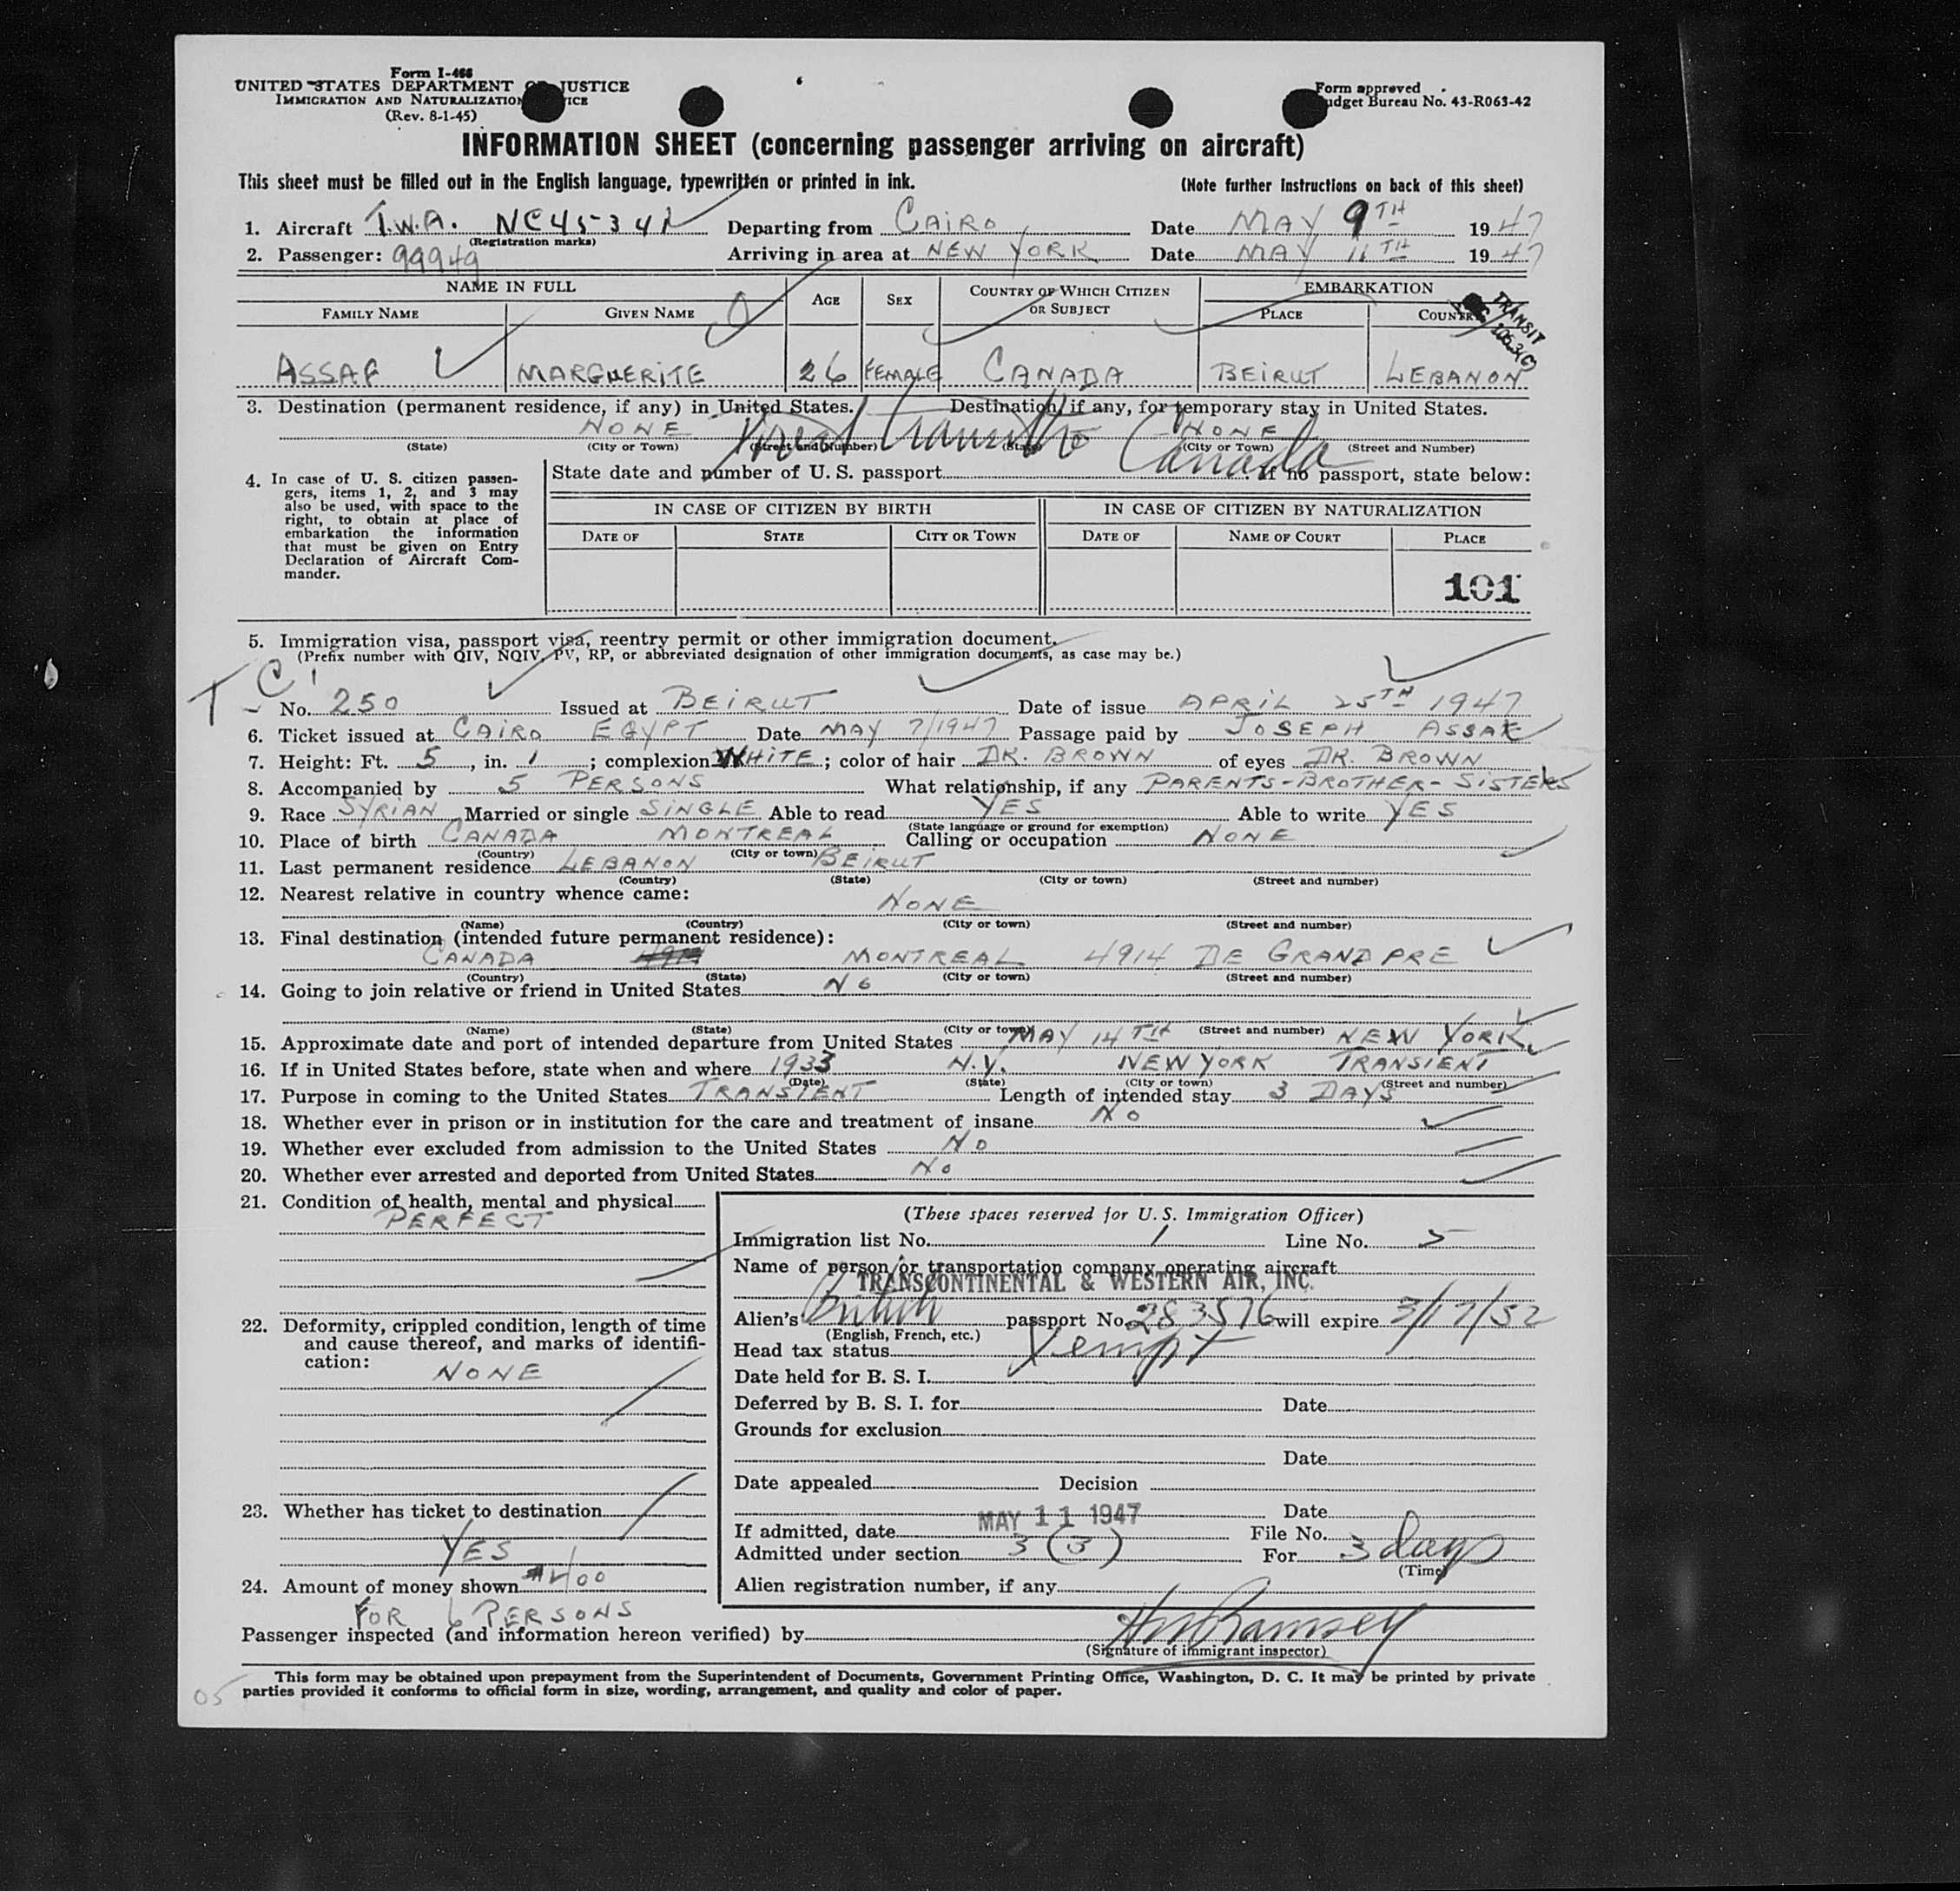 Form I-466
UNITED STATES DEPARTMENT OF JUSTICE
IMMIGRATION AND NATURALIZATION SERVICE
(Rev. 8-1-45)
Form approved
Budget Bureau No. 43-R063-42
INFORMATION SHEET (concerning passenger arriving on aircraft)
This sheet must be filled out in the English language, typewritten or printed in ink. (Note further instructions on back of this sheet)
1. Aircraft T.W.A. NC45341 Departing from CAIRO Date MAY 9TH 1947
(Registration marks)
2. Passenger: 99949 Arriving in area at NEW YORK Date MAY 11TH 1947
NAME IN FULL AGE SEX COUNTRY OF WHICH CITIZEN OR SUBJECT EMBARKATION
FAMILY NAME GIVEN NAME PLACE COUNTRY
TRANSIT
ASSAF MARGUERITE 26 FEMALE CANADA BEIRUT LEBANON
3. Destination (permanent residence, if any) in United States. Destination, if any, for temporary stay in United States.
NONE NONE
Transit to Canada
(State) (City or Town) (Street and Number) (State) (City or Town) (Street and Number)
4. In case of U. S. citizen passengers, items 1, 2, and 3 may also be used, with space to the right, to obtain at place of embarkation the information that must be given on Entry Declaration of Aircraft Commander.
State date and number of U. S. passport If no passport, state below:
IN CASE OF CITIZEN BY BIRTH IN CASE OF CITIZEN BY NATURALIZATION
DATE OF STATE CITY OR TOWN DATE OF NAME OF COURT PLACE
101
5. Immigration visa, passport visa, reentry permit or other immigration document.
(Prefix number with QIV, NQIV, PV, RP, or abbreviated designation of other immigration documents, as case may be.)
T C
No. 250 Issued at BEIRUT Date of issue APRIL 25TH 1947
6. Ticket issued at CAIRO EGYPT Date MAY 7/1947 Passage paid by JOSEPH ASSAF
7. Height: Ft. 5, in. 1; complexion WHITE; color of hair DK. BROWN of eyes DK. BROWN
8. Accompanied by 5 PERSONS What relationship, if any PARENTS-BROTHER-SISTERS
9. Race SYRIAN Married or single SINGLE Able to read YES Able to write YES
(State language or ground for exemption)
10. Place of birth CANADA MONTREAL Calling or occupation NONE
(Country) (City or town)
11. Last permanent residence LEBANON BEIRUT
(Country) (State) (City or town) (Street and number)
12. Nearest relative in country whence came:
NONE
(Name) (Country) (City or town) (Street and number)
13. Final destination (intended future permanent residence):
CANADA MONTREAL 4914 DE GRAND PRE
(Country) (State) (City or town) (Street and number)
14. Going to join relative or friend in United States NO
(Name) (State) (City or town) (Street and number)
15. Approximate date and port of intended departure from United States MAY 14TH NEW YORK
16. If in United States before, state when and where 1933 N.Y. NEW YORK TRANSIENT
(Date) (State) (City or town) (Street and number)
17. Purpose in coming to the United States TRANSIENT Length of intended stay 3 DAYS
18. Whether ever in prison or in institution for the care and treatment of insane NO
19. Whether ever excluded from admission to the United States NO
20. Whether ever arrested and deported from United States NO
21. Condition of health, mental and physical
PERFECT
22. Deformity, crippled condition, length of time and cause thereof, and marks of identification:
NONE
23. Whether has ticket to destination
YES
24. Amount of money shown $400
FOR 6 PERSONS
(These spaces reserved for U. S. Immigration Officer)
Immigration list No. 1 Line No. 5
Name of person or transportation company operating aircraft
TRANSCONTINENTAL & WESTERN AIR, INC.
Alien's British passport No. 283576 will expire 3/17/52
(English, French, etc.)
Head tax status Xempt
Date held for B. S. I.
Deferred by B. S. I. for Date
Grounds for exclusion
Date
Date appealed Decision
Date
If admitted, date MAY 11 1947 File No.
Admitted under section 3 (3) For 3 days
(Time)
Alien registration number, if any
Passenger inspected (and information hereon verified) by Ramsey
(Signature of immigrant inspector)
This form may be obtained upon prepayment from the Superintendent of Documents, Government Printing Office, Washington, D. C. It may be printed by private
parties provided it conforms to official form in size, wording, arrangement, and quality and color of paper.
05